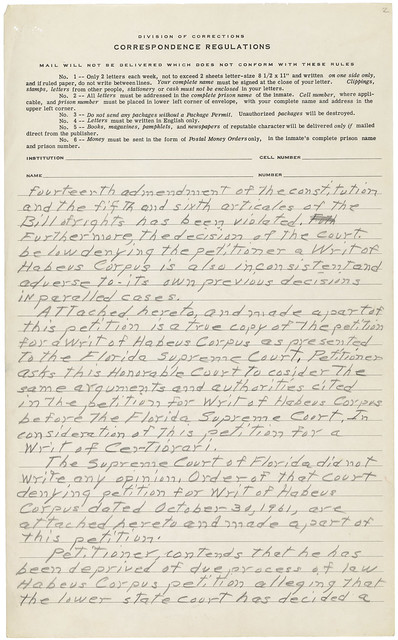 2
DIVISION OF CORRECTIONS
CORRESPONDENCE REGULATIONS
MAIL WILL NOT BE DELIVERED WHICH DOES NOT CONFORM WITH THESE RULES
No. 1 -- Only 2 letters each week, not to exceed 2 sheets letter-size 8 1/2 x 11" and written on one side only,
and if ruled paper, do not write between lines. Your complete name must be signed at the close of your letter. Clippings,
stamps, letters from other people, stationery or cash must not be enclosed in your letters.
No. 2 -- All letters must be addressed in the complete prison name of the inmate. Cell number, where appli-
cable, and prison number must be placed in lower left corner of envelope, with your complete name and address in the
upper left corner.
No. 3 -- Do not send any packages without a Package Permit. Unauthorized packages will be destroyed.
No. 4 -- Letters must be written in English only.
No. 5 -- Books, magazines, pamphlets, and newspapers of reputable character will be delivered only if mailed
direct from the publisher.
No. 6 -- Money must be sent in the form of Postal Money Orders only, in the inmate's complete prison name
and prison number.
INSTITUTION CELL NUMBER
NAME NUMBER
fourteenth admendment of the constitution
and the fifth and sixth articales of the
Bill of rights has been violated.
Furthermore, the decision of the court
below denying the petitioner a Writ of
Habeus Corpus is also inconsistent and
adverse to its own previous decisions
in paralled cases.
Attached hereto, and made a part of
this petition is a true copy of the petition
for a Writ of Habeus Corpus as presented
to the Florida Supreme Court. Petitioner
asks this Honorable Court to cosider the
same arguments and authorities cited
in the petition for Writ of Habeus Corpus
before the Florida Supreme Court. In
consideration of this petition for a
Writ of Certiorari.
The Supreme Court of Florida did not
write any opinion. Order of that Court
denying petition for Writ of Habeus
Corpus dated October 30, 1961, are
attached hereto and made a part of
this petition.
Petitioner, contends that he has
been deprived of due process of law
Habeus Corpus petition alleging that
the lower state court has decided a